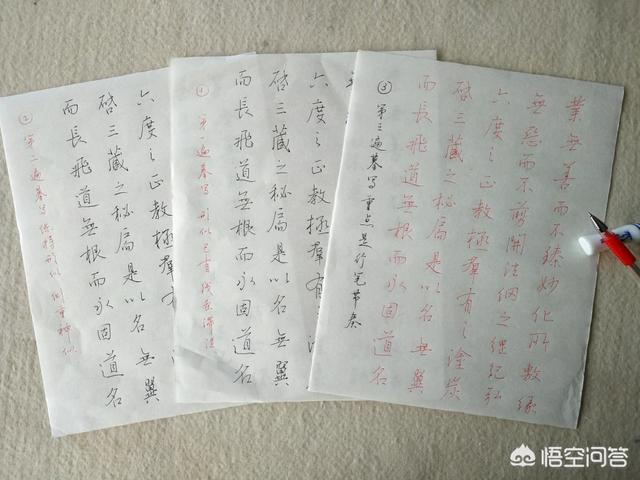 六度之正教拯羣有
啓三藏之秘扃是以名無翼
而長飛道無根而永固道名
② 第二遍摹写保持形似 侧重神似
六度之正教拯羣有之塗
啓三藏之秘扃是以名無翼
而長飛道無根而永固道名
① 第一遍摹写 形似已有
業無善而不臻妙化所敷緣
無惡而不剪開法網之綱紀弘
六度之正教拯羣有之塗炭
啓三藏之秘扃是以名無翼
而長飛道無根而永固道名
③ 第三遍摹写重点是行笔节奏
悟空问答